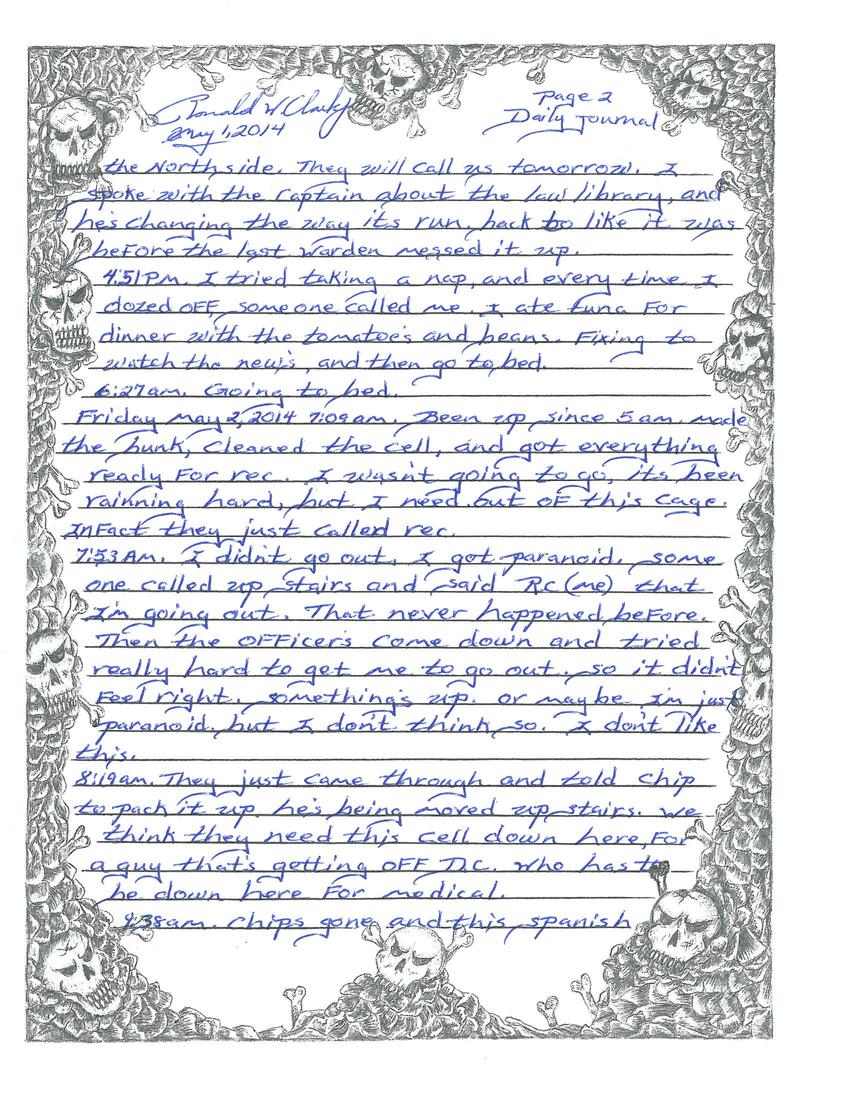 Ronald W Clark Jr
Page 2
May 1, 2014
Daily Journal
the Northside. They will call us tomorrow. I
spoke with the captain about the law library, and
he's changing the way its run, back to like it was
before the last warden messed it up.
4:51 PM. I tried taking a nap, and every time I
dozed off someone called me. I ate tuna for
dinner with the tomatoe's and beans. Fixing to
watch the new's, and then go to bed.
6:27am. Going to bed.
Friday May 2, 2014 7:09am. Been up since 5am. made
the bunk, cleaned the cell, and got everything
ready for rec. I wasn't going to go, its been
rainning hard, but I need out of this cage.
Infact they just called rec.
7:53 AM. I didn't go out. I got paranoid. some
one called up stairs and said R.C (me) that
I'm going out. That never happened before.
Then the officer's come down and tried
really hard to get me to go out. so it didn't
feel right. something's up. or maybe I'm just
paranoid. but I don't think so. I don't like
this.
8:19am. They just came through and told chip
to pack it up. he's being moved up stairs. we
think they need this cell down here, for
a guy that's getting off D.C. who has to
be down here for medical.
9:38am. Chips gone and this spanish